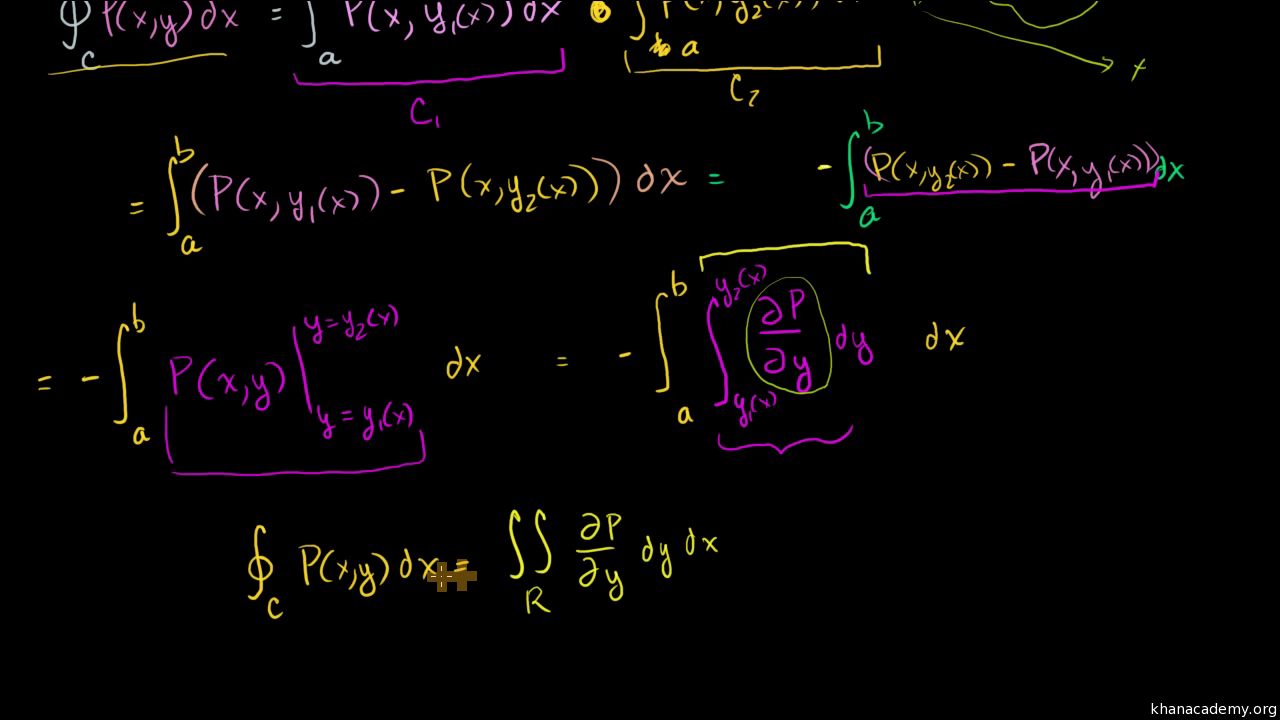 ∮_C P(x,y) dx = ∫_a P(x, y₁(x)) dx ∫_a P(x, y₂(x))
x
C₁ C₂
= ∫_a^b (P(x, y₁(x)) - P(x, y₂(x))) dx = - ∫_a^b (P(x, y₂(x)) - P(x, y₁(x))) dx
= - ∫_a^b P(x,y) |_{y = y₁(x)}^{y = y₂(x)} dx = - ∫_a^b ∫_{y₁(x)}^{y₂(x)} ∂P/∂y dy dx
∮_C P(x,y) dx = ∬_R ∂P/∂y dy dx
khanacademy.org